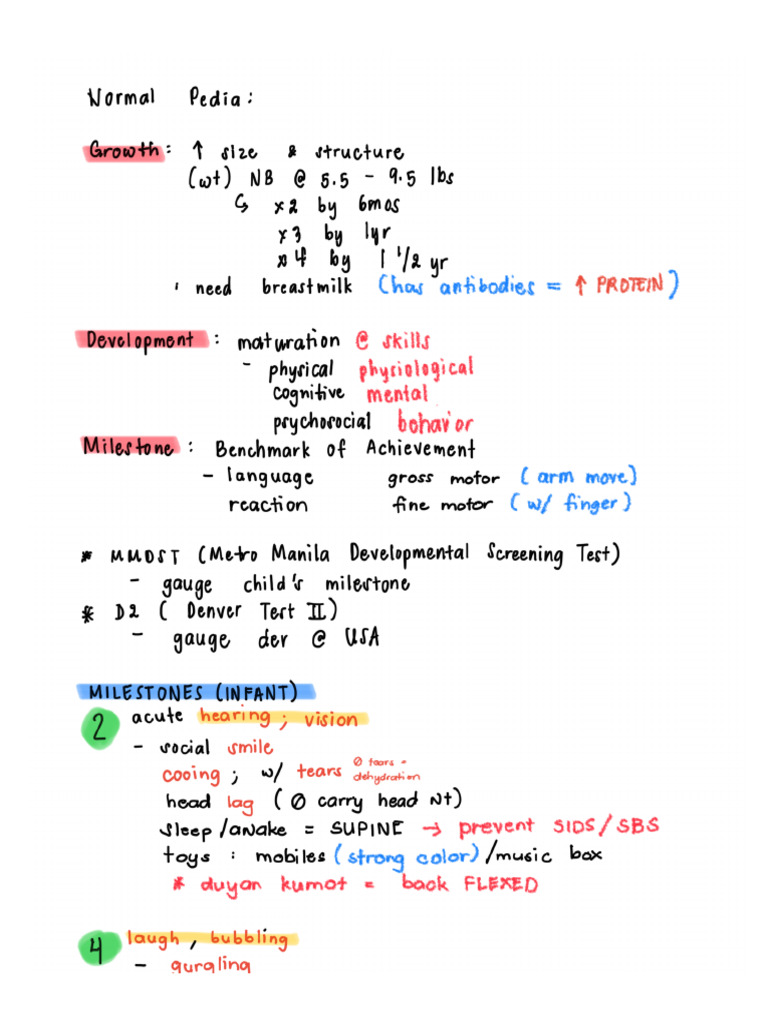 Normal Pedia:
Growth: ↑ size & structure
(wt) NB @ 5.5 - 9.5 lbs
↳ x2 by 6mos
x3 by 1yr
x4 by 1 1/2 yr
· need breastmilk (has antibodies = ↑ PROTEIN)
Development: maturation @ skills
- physical physiological
cognitive mental
psychosocial behavior
Milestone: Benchmark of Achievement
- language gross motor (arm move)
reaction fine motor (w/ finger)
* MMDST (Metro Manila Developmental Screening Test)
- gauge child's milestone
* D2 (Denver Test II)
- gauge der @ USA
MILESTONES (INFANT)
2 acute hearing; vision
- social smile
cooing; w/ tears Ø tears = dehydration
head lag (Ø carry head Nt)
sleep/awake = SUPINE → prevent SIDS/SBS
toys: mobiles (strong color)/music box
* duyan kumot = back FLEXED
4 laugh, bubbling
- gurgling